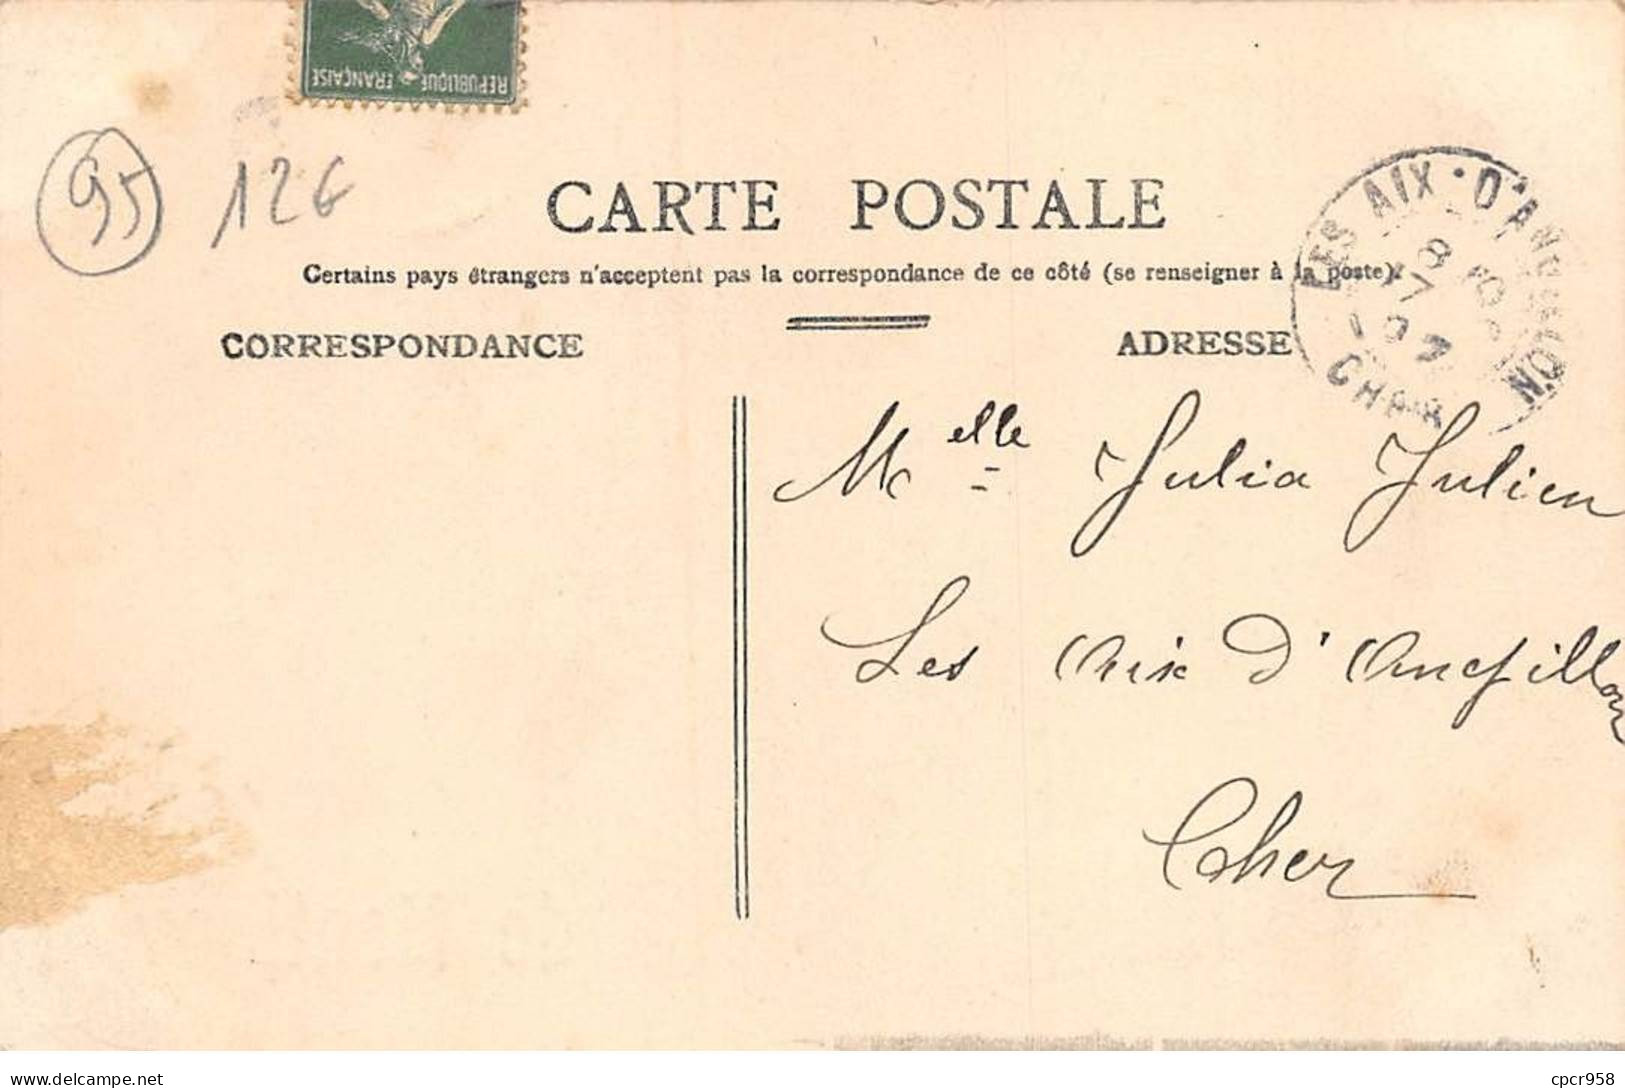 REPUBLIQUE FRANÇAISE
95 12€
CARTE POSTALE
Certains pays étrangers n'acceptent pas la correspondance de ce côté (se renseigner à la poste).
CORRESPONDANCE
ADRESSE
LES AIX-D'ANGILLON
CHER
Melle Julia Julien
Les Aix d'Angillon
Cher
delcampe.net
cpcr958